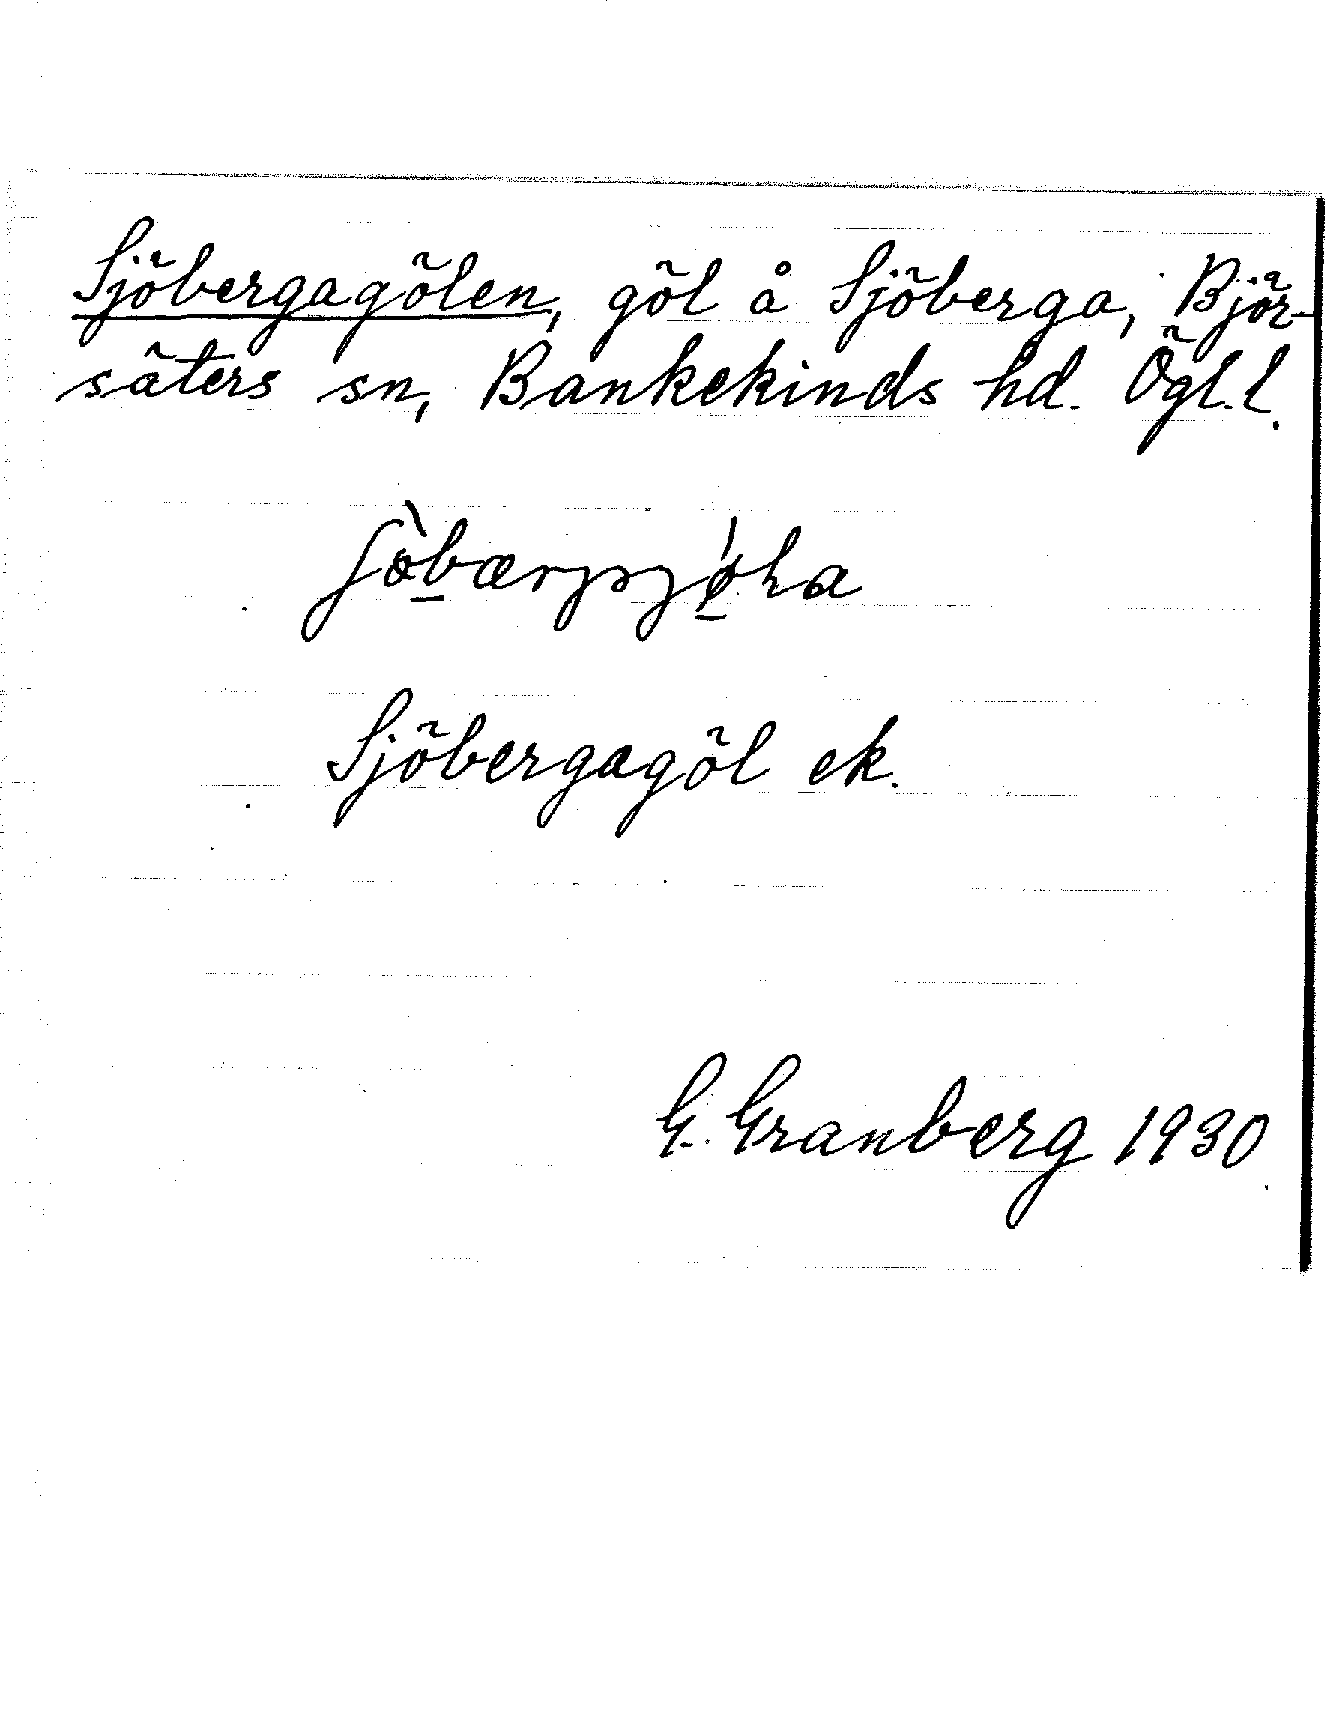 Sjöbergagölen, göl å Sjöberga, Björ-
säters sn, Bankekinds hd. Ögl. l.
Sjöbergagöl ek.
G. Granberg 1930